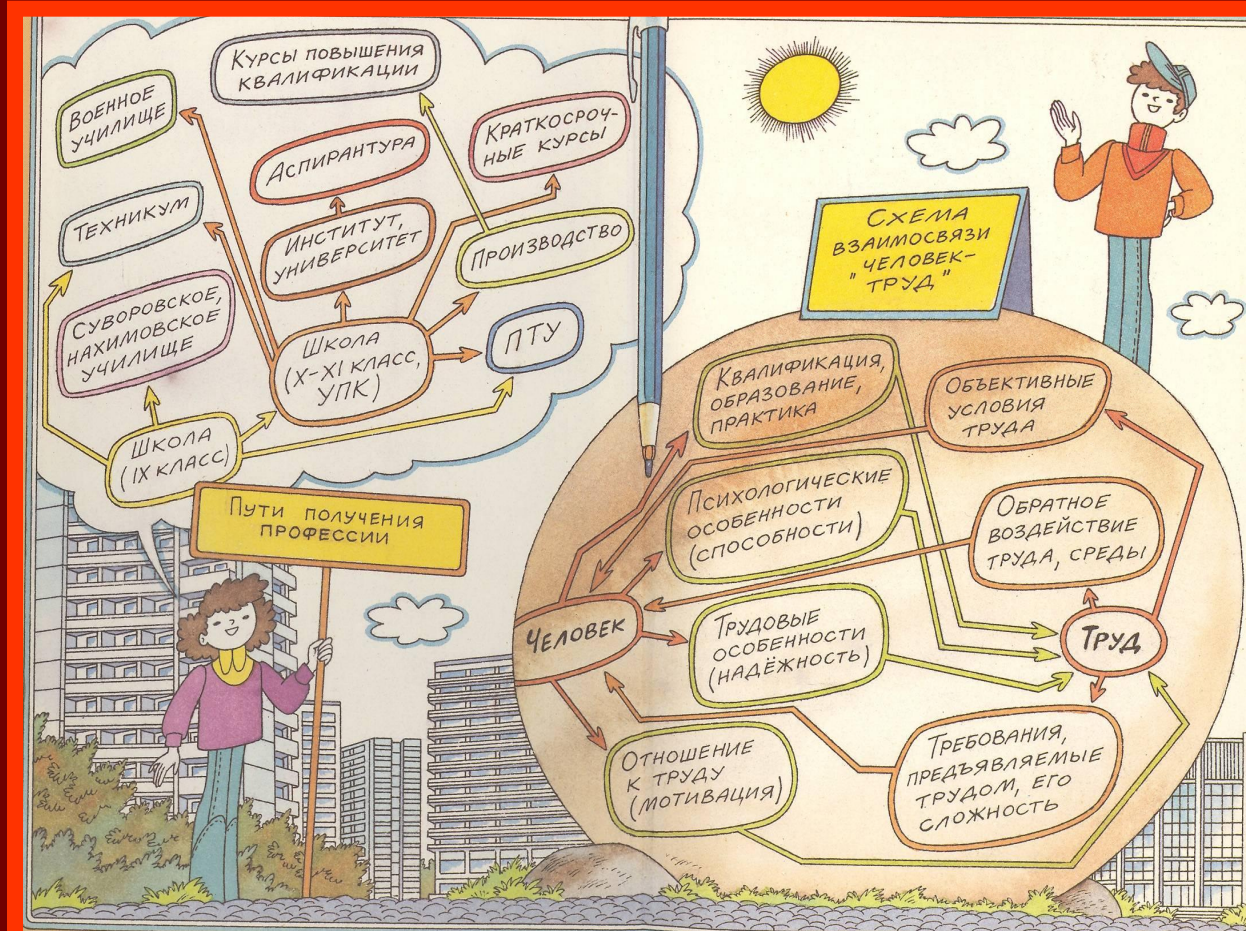 Курсы повышения
квалификации
Военное
училище
Аспирантура
Краткосроч-
ные курсы
Техникум
Институт,
университет
Производство
Суворовское,
нахимовское
училище
Школа
(X-XI класс,
УПК)
ПТУ
Школа
(IX класс)
Пути получения
профессии
Схема
взаимосвязи
"человек-
труд"
Квалификация,
образование,
практика
Объективные
условия
труда
Психологические
особенности
(способности)
Обратное
воздействие
труда, среды
Человек
Трудовые
особенности
(надёжность)
Труд
Отношение
к труду
(мотивация)
Требования,
предъявляемые
трудом, его
сложность